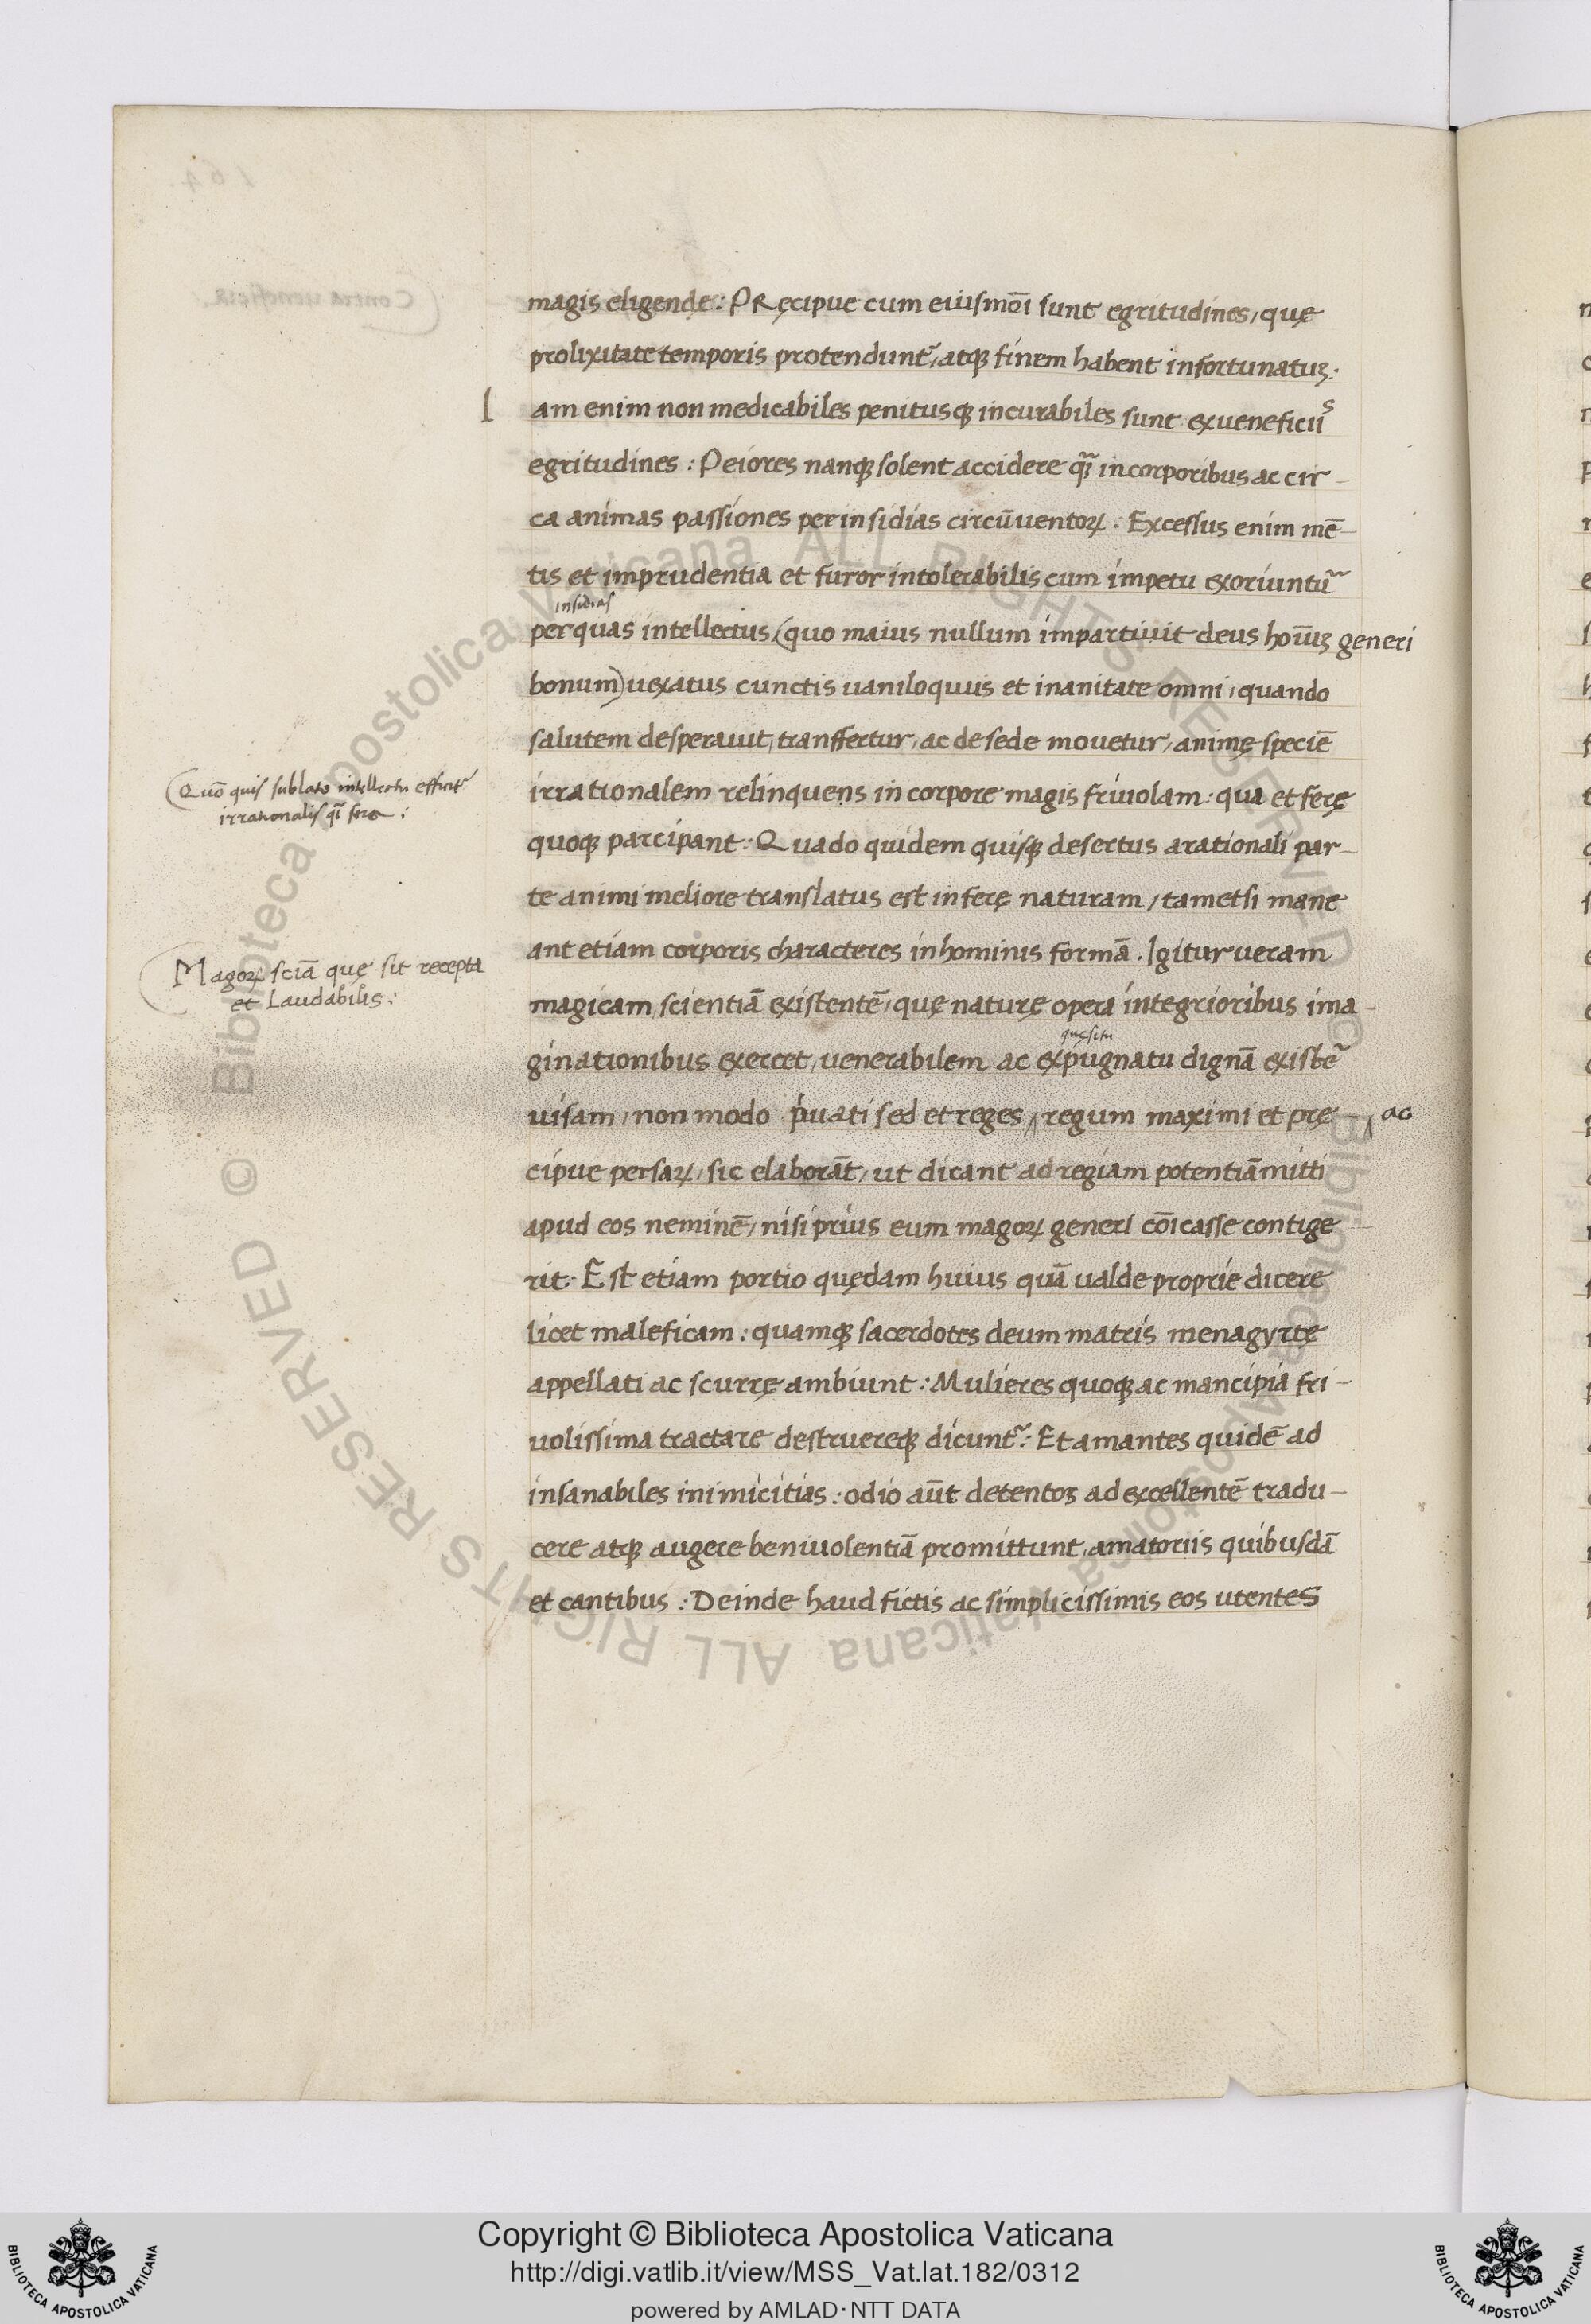 magis eligendę: PRęcipue cum eiusmōi sunt egritudines, quę
prolixitate temporis protendunt᷑, atqꝫ finem habent infortunatuꝫ:
I am enim non medicabiles penitusqꝫ incurabiles sunt ex ueneficiis
egritudines: Peiores nanqꝫ solent accidere qᷓꝫ in corporibus ac cir-
ca animas passiones per insidias circūuentoꝝ: Excessus enim mē-
tis et imprudentia et furor intolerabilis cum impetu exoriuntu᷑
insidias
per quas intellectus (quo maius nullum impartiuit deus hoīūꝫ generi
bonum) uexatus cunctis uaniloquiis et inanitate omni, quando
salutem desperauit, transfertur, ac de sede mouetur, animę speciē
irrationalem relinquens in corpore magis friuolam: qua et ferę
Quō quis sublato intellectu efficit᷑
irrationalis qͣi fera:
quoqꝫ parcipant: Quado quidem quisqꝫ desertus a rationali par-
te animi meliore translatus est in ferę naturam, tametsi mane
ant etiam corporis characteres in hominis formā. Igitur ueram
Magoꝝ sciā quę sit recepta
et Laudabilis:
magicam scientiā existentē, quę naturę opera integrioribus ima-
quęsitu
ginationibus exercet, uenerabilem ac expugnatu dignā existe᷑
uisam, non modo p̍uati sed et reges, ‸ regum maximi et prę- ‸ ac
cipue persaꝝ, sic elaborāt, ut dicant ad regiam potentiā mitti
apud eos neminē, nisi prius eum magoꝝ generi cōicasse contige-
rit: Est etiam portio quędam huius quā ualde proprie dicere
licet maleficam: quamqꝫ sacerdotes deum matris menagyrtę
appellati ac scurrę ambiunt: Mulieres quoqꝫ ac mancipia fri-
uolissima tractare destruereqꝫ dicunt᷑: Et amantes quidē ad
insanabiles inimicitias: odio aūt detentos ad excellentē tradu-
cere atqꝫ augere beniuolentiā promittunt, amatoriis quibusdā
et cantibus: Deinde haud fictis ac simplicissimis eos utentes
Copyright © Biblioteca Apostolica Vaticana
http://digi.vatlib.it/view/MSS_Vat.lat.182/0312
powered by AMLAD·NTT DATA
BIBLIOTECA APOSTOLICA VATICANA
BIBLIOTECA APOSTOLICA VATICANA
© Biblioteca Apostolica Vaticana ALL RIGHTS RESERVED
© Biblioteca Apostolica Vaticana ALL RIGHTS RESERVED